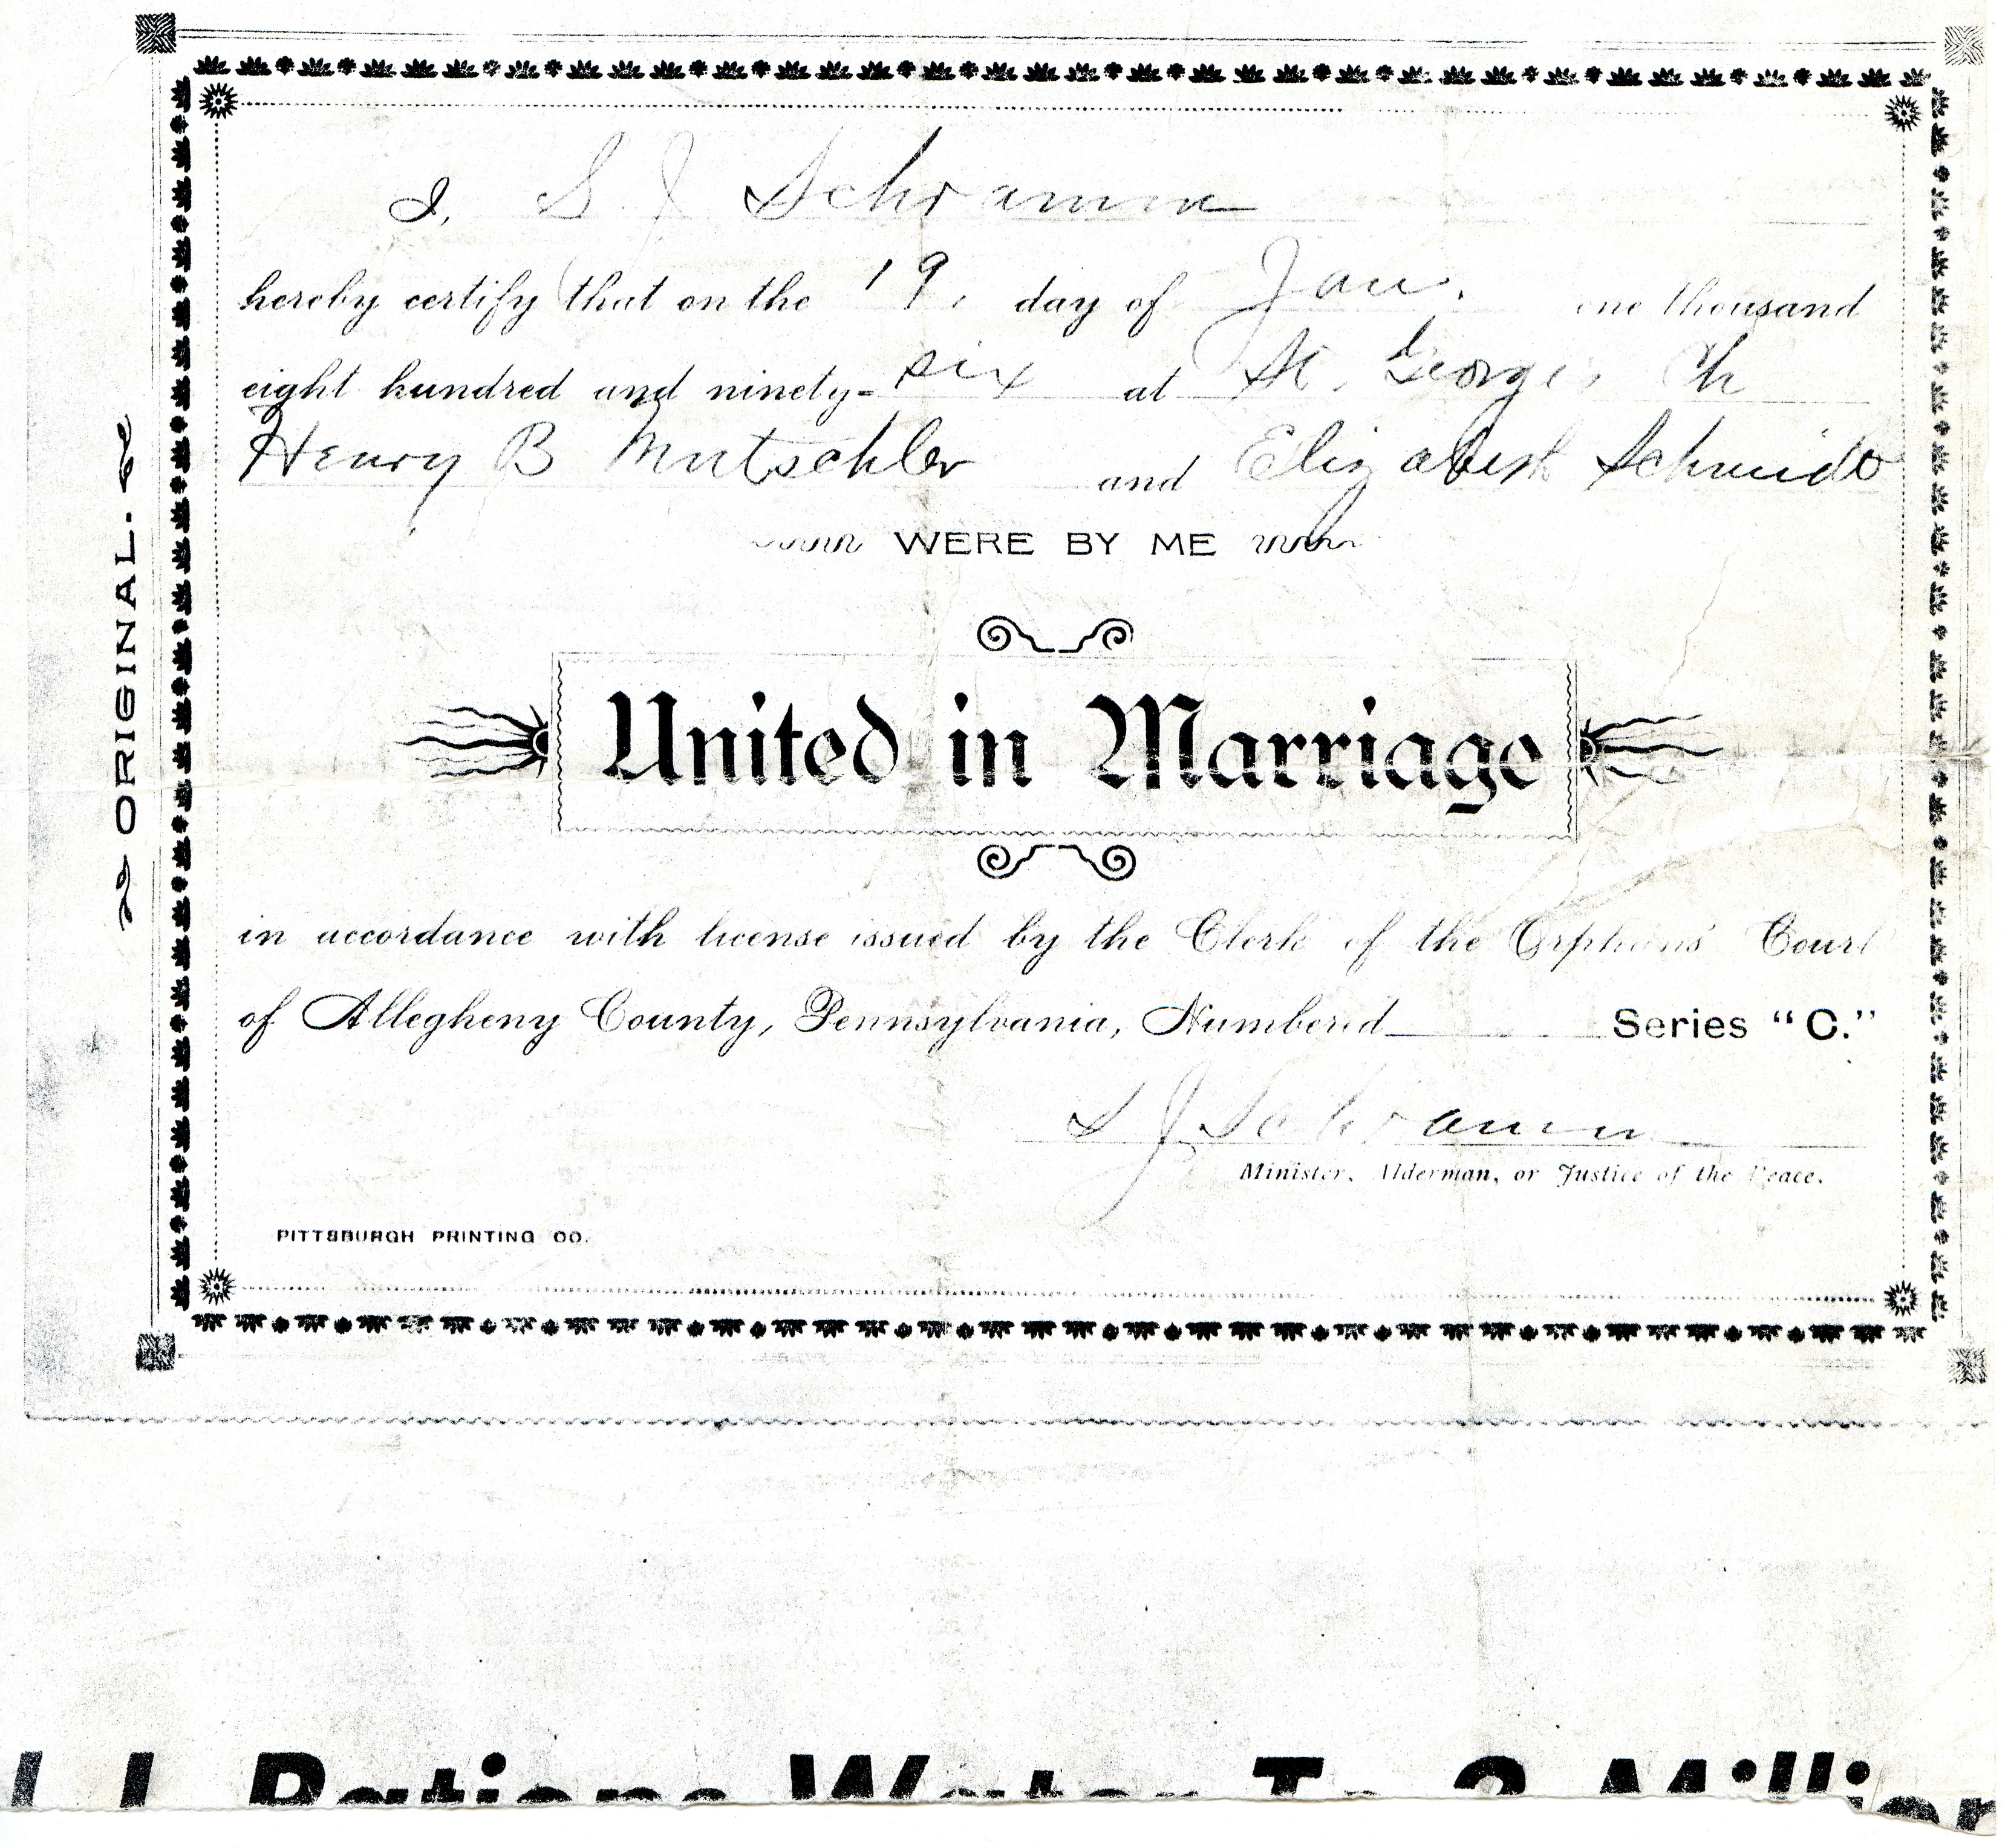 I, S J Schramm
hereby certify that on the 19, day of Jan. one thousand
eight hundred and ninety-six at St. George's Ch
Henry B Mutschler and Elizabeth Schmidt
WERE BY ME
United in Marriage
in accordance with license issued by the Clerk of the Orphans' Court
of Allegheny County, Pennsylvania, Numbered Series "C."
S J Schramm
Minister, Alderman, or Justice of the Peace.
PITTSBURGH PRINTING CO.
ORIGINAL.
Rations Water To 2 Million